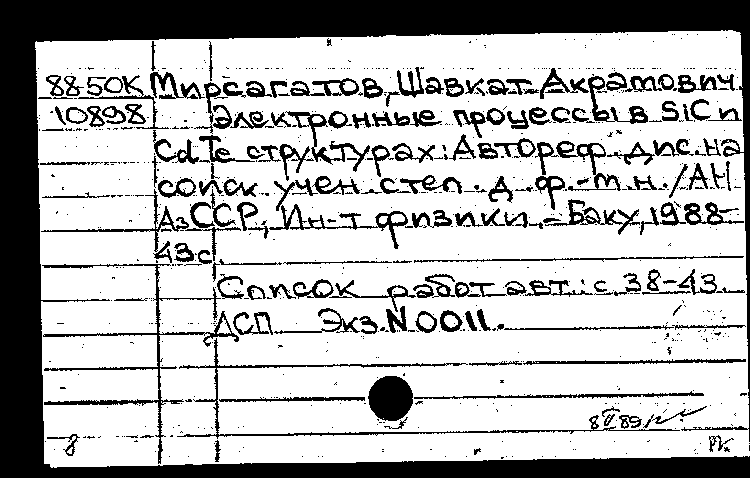 88-50К Мирсагатов, Шавкат Акрамович.
10898 Электронные процессы в SiC и
CdTe структурах: Автореф. дис. на
соиск. учен. степ. д. ф.-м. н. / АН
АзССР, Ин-т физики. - Баку, 1988-
43с.
Список работ авт.: с. 38-43.
ДСП Экз. N 0011.